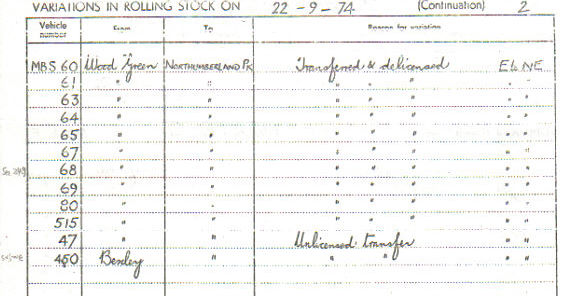 VARIATIONS IN ROLLING STOCK ON 22-9-74 (Continuation) 2
Vehicle number From To Reason for variation
MBS 60 Wood Green NORTHUMBERLAND PK Transferred & delicensed E to NE
61 " " " " " " "
63 " " " " " " "
64 " " " " " " "
65 " " " " " " "
67 " " " " " " "
68 " " " " " " "
69 " " " " " " "
80 " " " " " " "
515 " " " " " " "
47 " " Unlicensed transfer " "
460 Bexley " " " " "